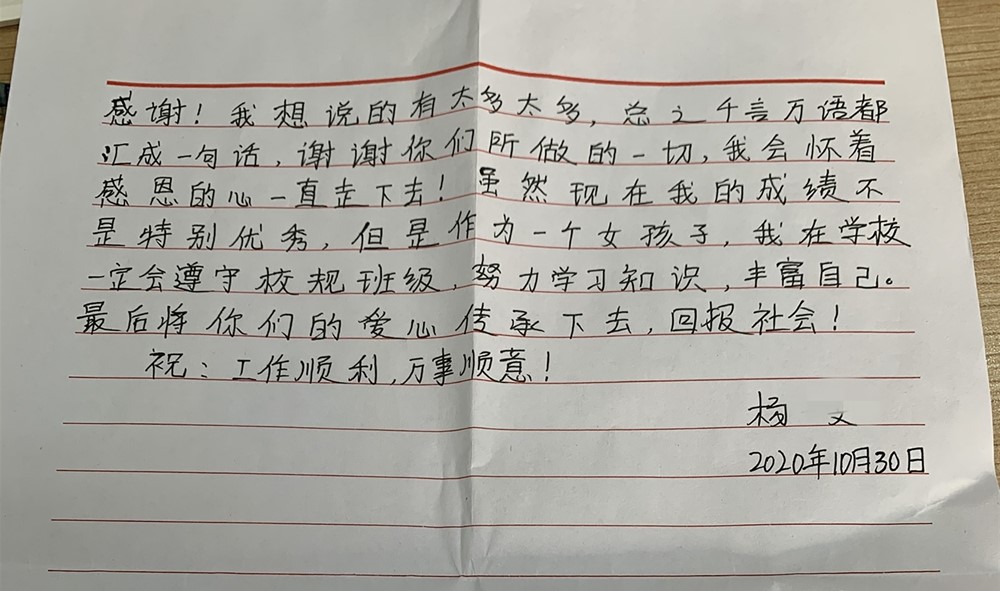 感谢！我想说的有太多太多，总之千言万语都
汇成一句话，谢谢你们所做的一切，我会怀着
感恩的心一直走下去！虽然现在我的成绩不
是特别优秀，但是作为一个女孩子，我在学校
一定会遵守校规班级，努力学习知识，丰富自己。
最后将你们的爱心传承下去，回报社会！
祝：工作顺利，万事顺意！
杨
2020年10月30日